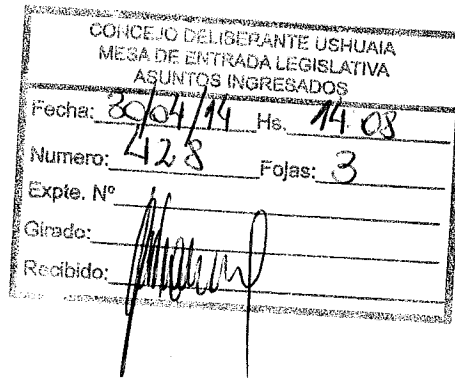 CONCEJO DELIBERANTE USHUAIA
MESA DE ENTRADA LEGISLATIVA
ASUNTOS INGRESADOS
Fecha: 30/04/14 Hs. 14:08
Numero: 428 Fojas: 3
Expte. Nº
Girado:
Recibido: